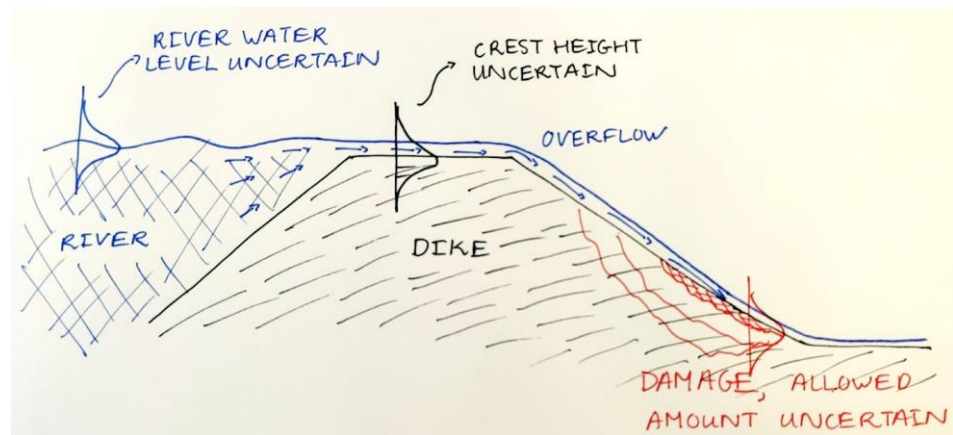 RIVER WATER
LEVEL UNCERTAIN
CREST HEIGHT
UNCERTAIN
OVERFLOW
RIVER
DIKE
DAMAGE, ALLOWED
AMOUNT UNCERTAIN